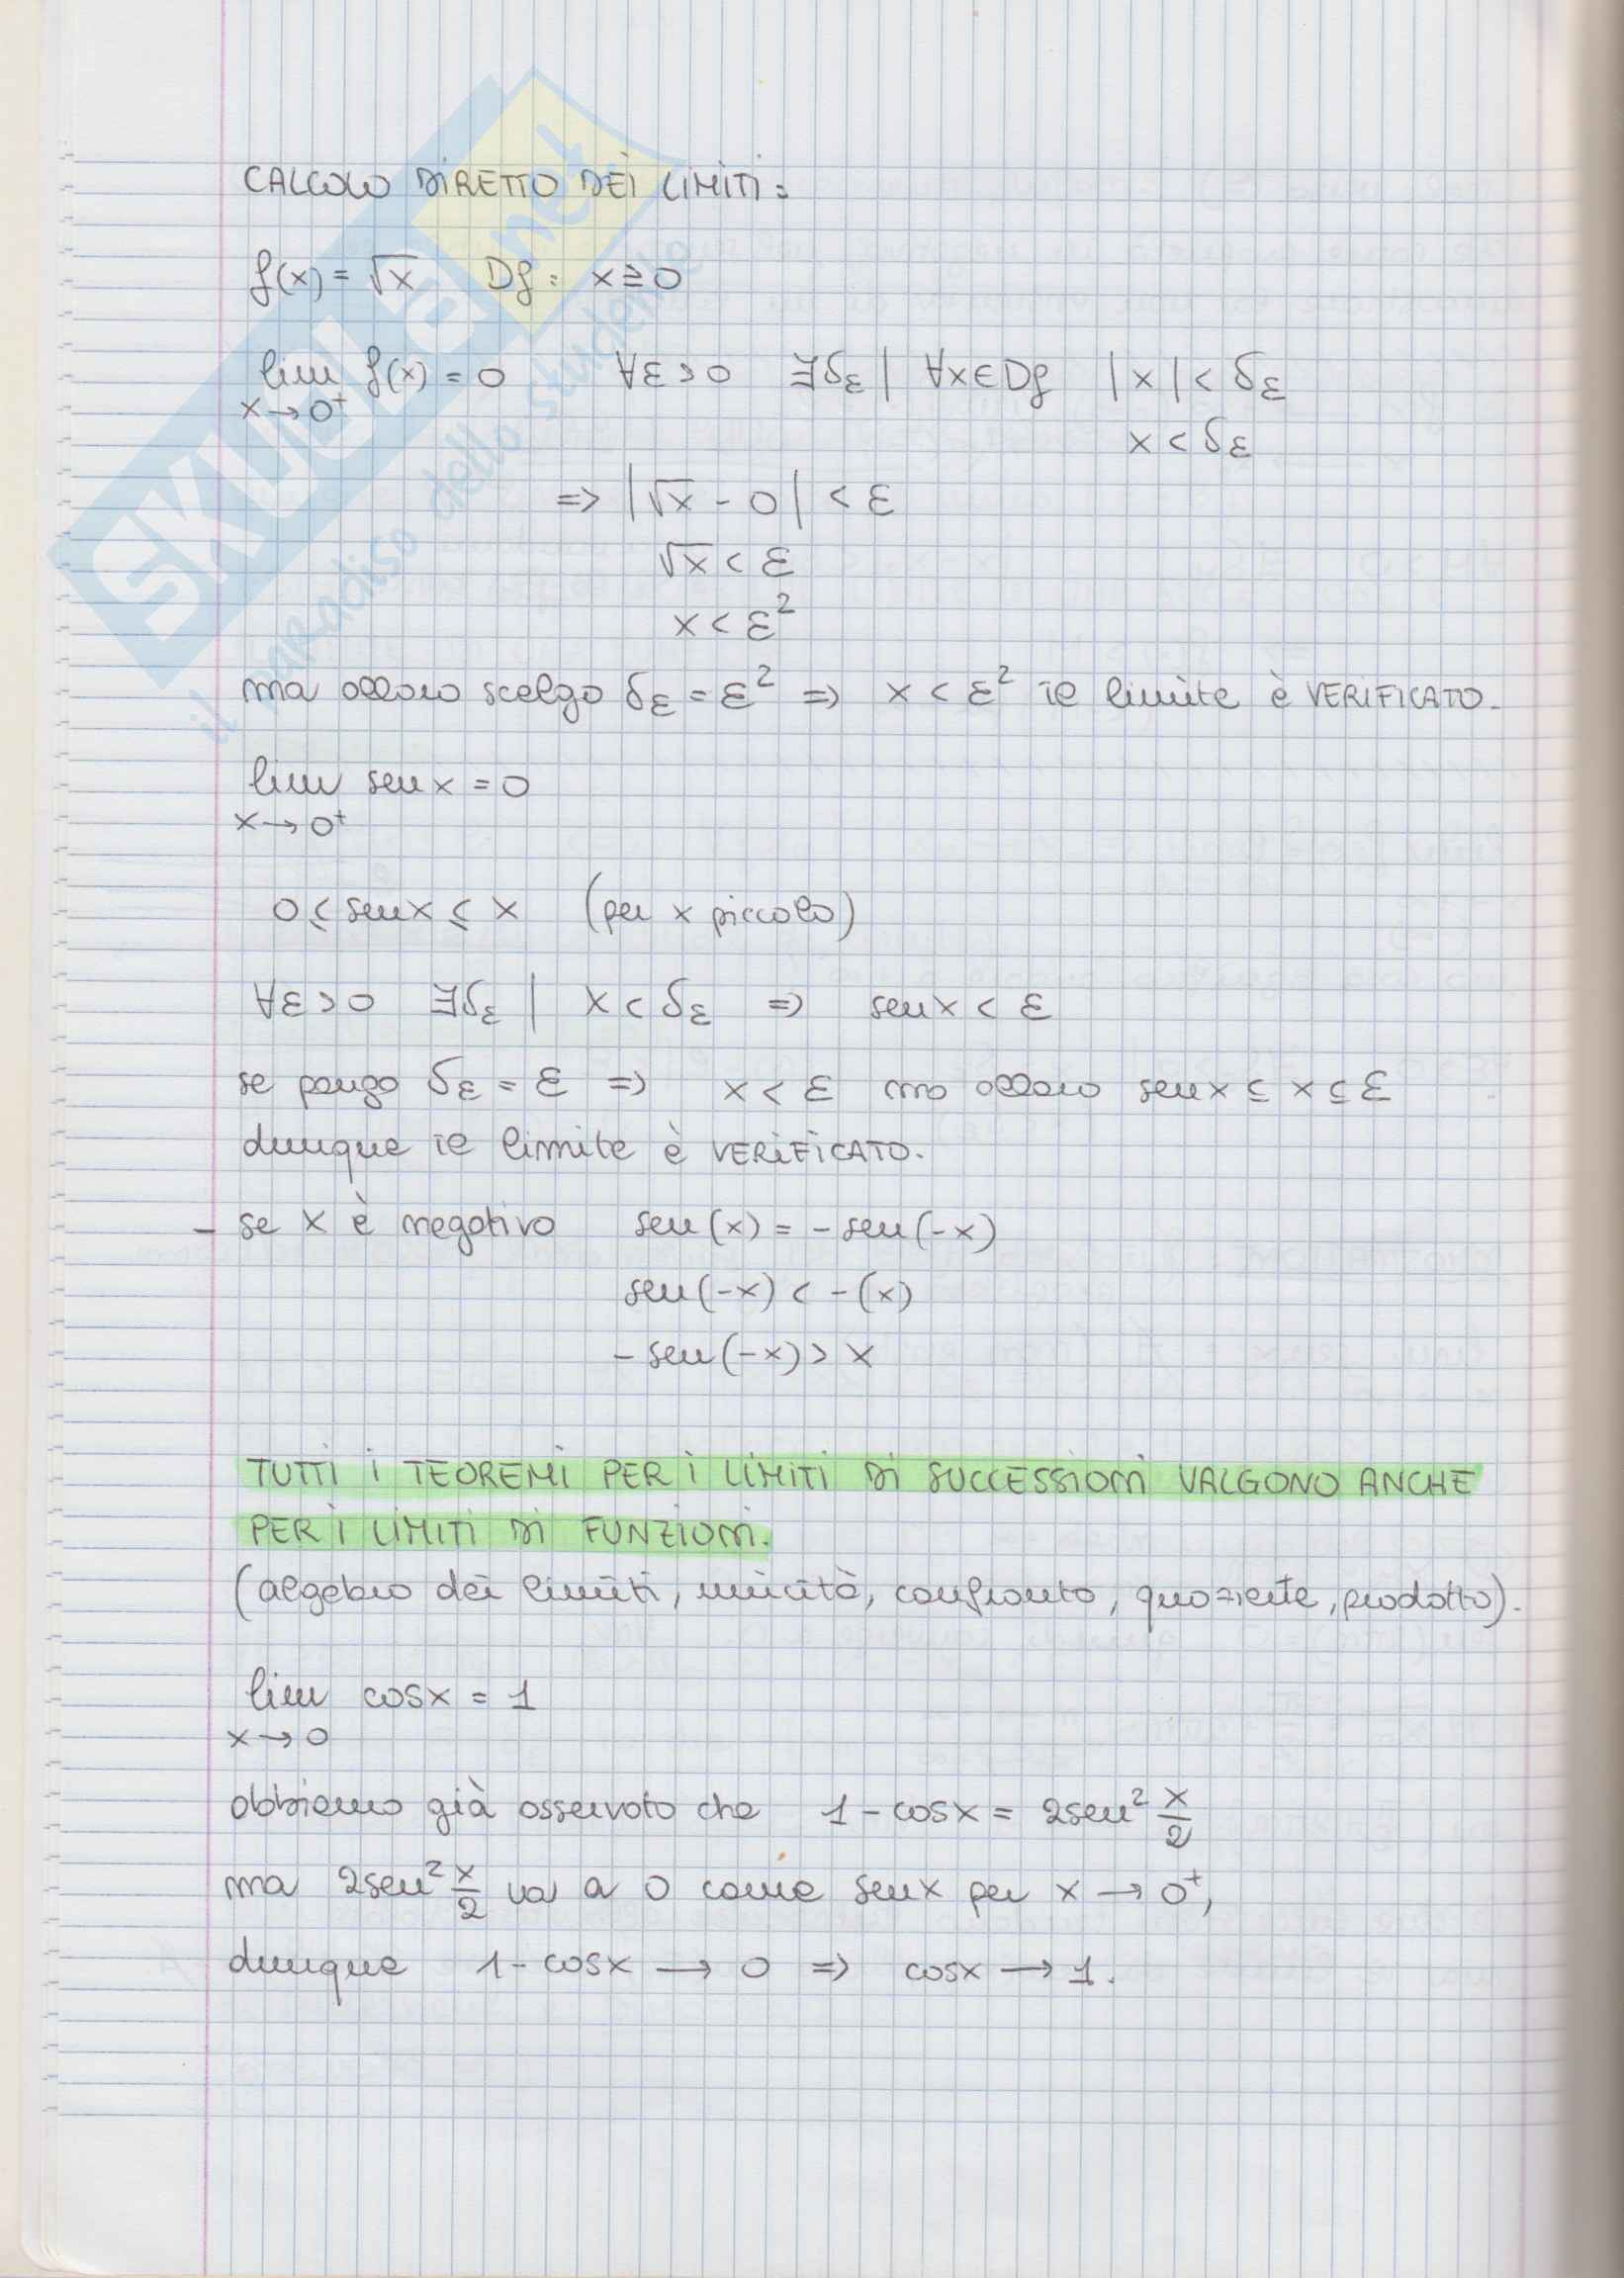 CALCOLO DIRETTO DEI LIMITI:
f(x) = √x Df: x ≥ 0
lim f(x) = 0 ∀ε > 0 ∃δε | ∀x∈Df |x| < δε
x → 0⁺
x < δε
=> |√x - 0| < ε
√x < ε
x < ε²
ma allora scelgo δε = ε² => x < ε² il limite è VERIFICATO.
lim sen x = 0
x → 0⁺
0 ≤ sen x ≤ x (per x piccolo)
∀ε > 0 ∃δε | x < δε => sen x < ε
se pongo δε = ε => x < ε ma allora sen x ≤ x ≤ ε
dunque il limite è VERIFICATO.
- se x è negativo sen(x) = - sen(-x)
sen(-x) < -(x)
- sen(-x) > x
TUTTI I TEOREMI PER I LIMITI DI SUCCESSIONI VALGONO ANCHE
PER I LIMITI DI FUNZIONI.
(algebra dei limiti, unicità, confronto, quoziente, prodotto).
lim cosx = 1
x → 0
abbiamo già osservato che 1 - cosx = 2sen² x/2
ma 2sen² x/2 va a 0 come sen x per x → 0⁺,
dunque 1 - cosx → 0 => cosx → 1.
SKUOLA.net
il paradiso dello studente